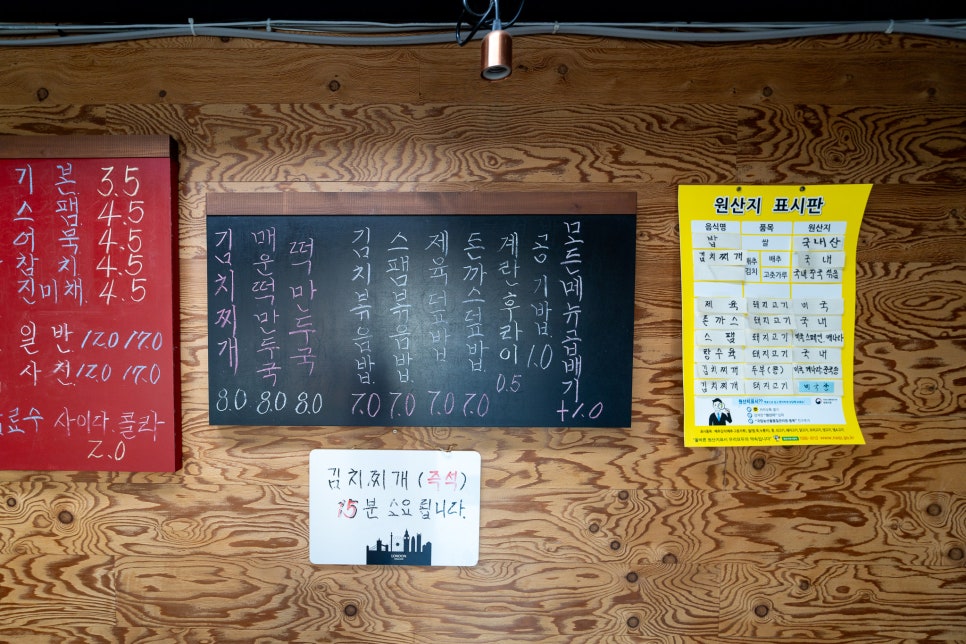 기 본 3.5
스 팸 4.5
어 묵 4.5
참 치 4.5
진미채. 4.5
일 반. 12.0 17.0
사 천. 12.0 17.0
료수 사이다. 콜라
2.0
김치찌개 8.0
매운떡만둣국 8.0
떡만두국 8.0
김치볶음밥. 7.0
스팸볶음밥. 7.0
제육덮밥. 7.0
돈까스덮밥. 7.0
계란후라이 0.5
공기밥. 1.0
모든메뉴곱배기 +1.0
김치찌개 (즉석)
15분 소요됩니다.
LONDON
원산지 표시판
음식명 품목 원산지
밥 쌀 국내산
김치찌개 배추김치 배추 국내
고춧가루 국내 중국 섞음
제육 돼지고기 미국
돈까스 돼지고기 국내
스팸 돼지고기
탕수육 돼지고기 국내
김치찌개 두부(콩)
김치찌개 돼지고기 미국산
원산지표시제?